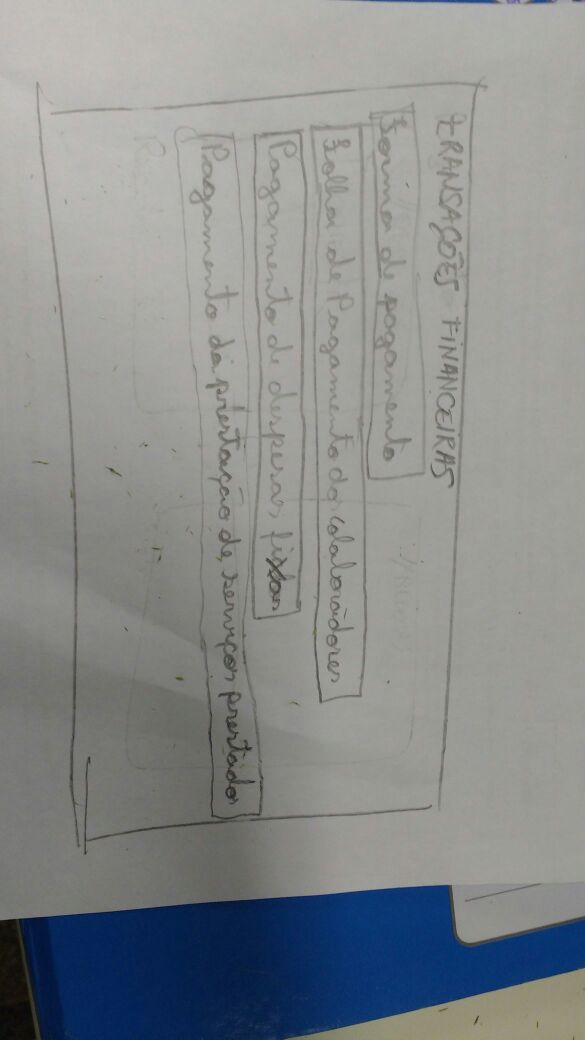 tRANSAÇÕES FINANCEIRAS
forma de pagamento
folha de Pagamento do colaboradores
Pagamento de despesas fixas
Pagamento da prestação de serviços prestados